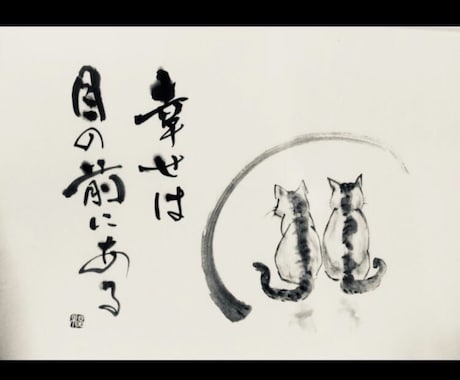 幸せは
目の前にある